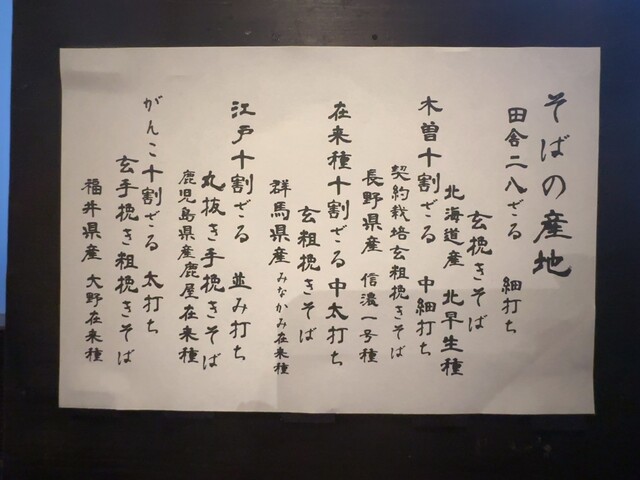 そばの産地
田舎二八ざる 細打ち
玄挽きそば
北海道産 北早生種
木曽十割ざる 中細打ち
契約栽培玄粗挽きそば
長野県産 信濃一号種
在来種十割ざる 中太打ち
玄粗挽きそば
群馬県産 みなかみ在来種
江戸十割ざる 並み打ち
丸抜き手挽きそば
鹿児島県産鹿屋在来種
がんこ十割ざる 太打ち
玄手挽き粗挽きそば
福井県産 大野在来種